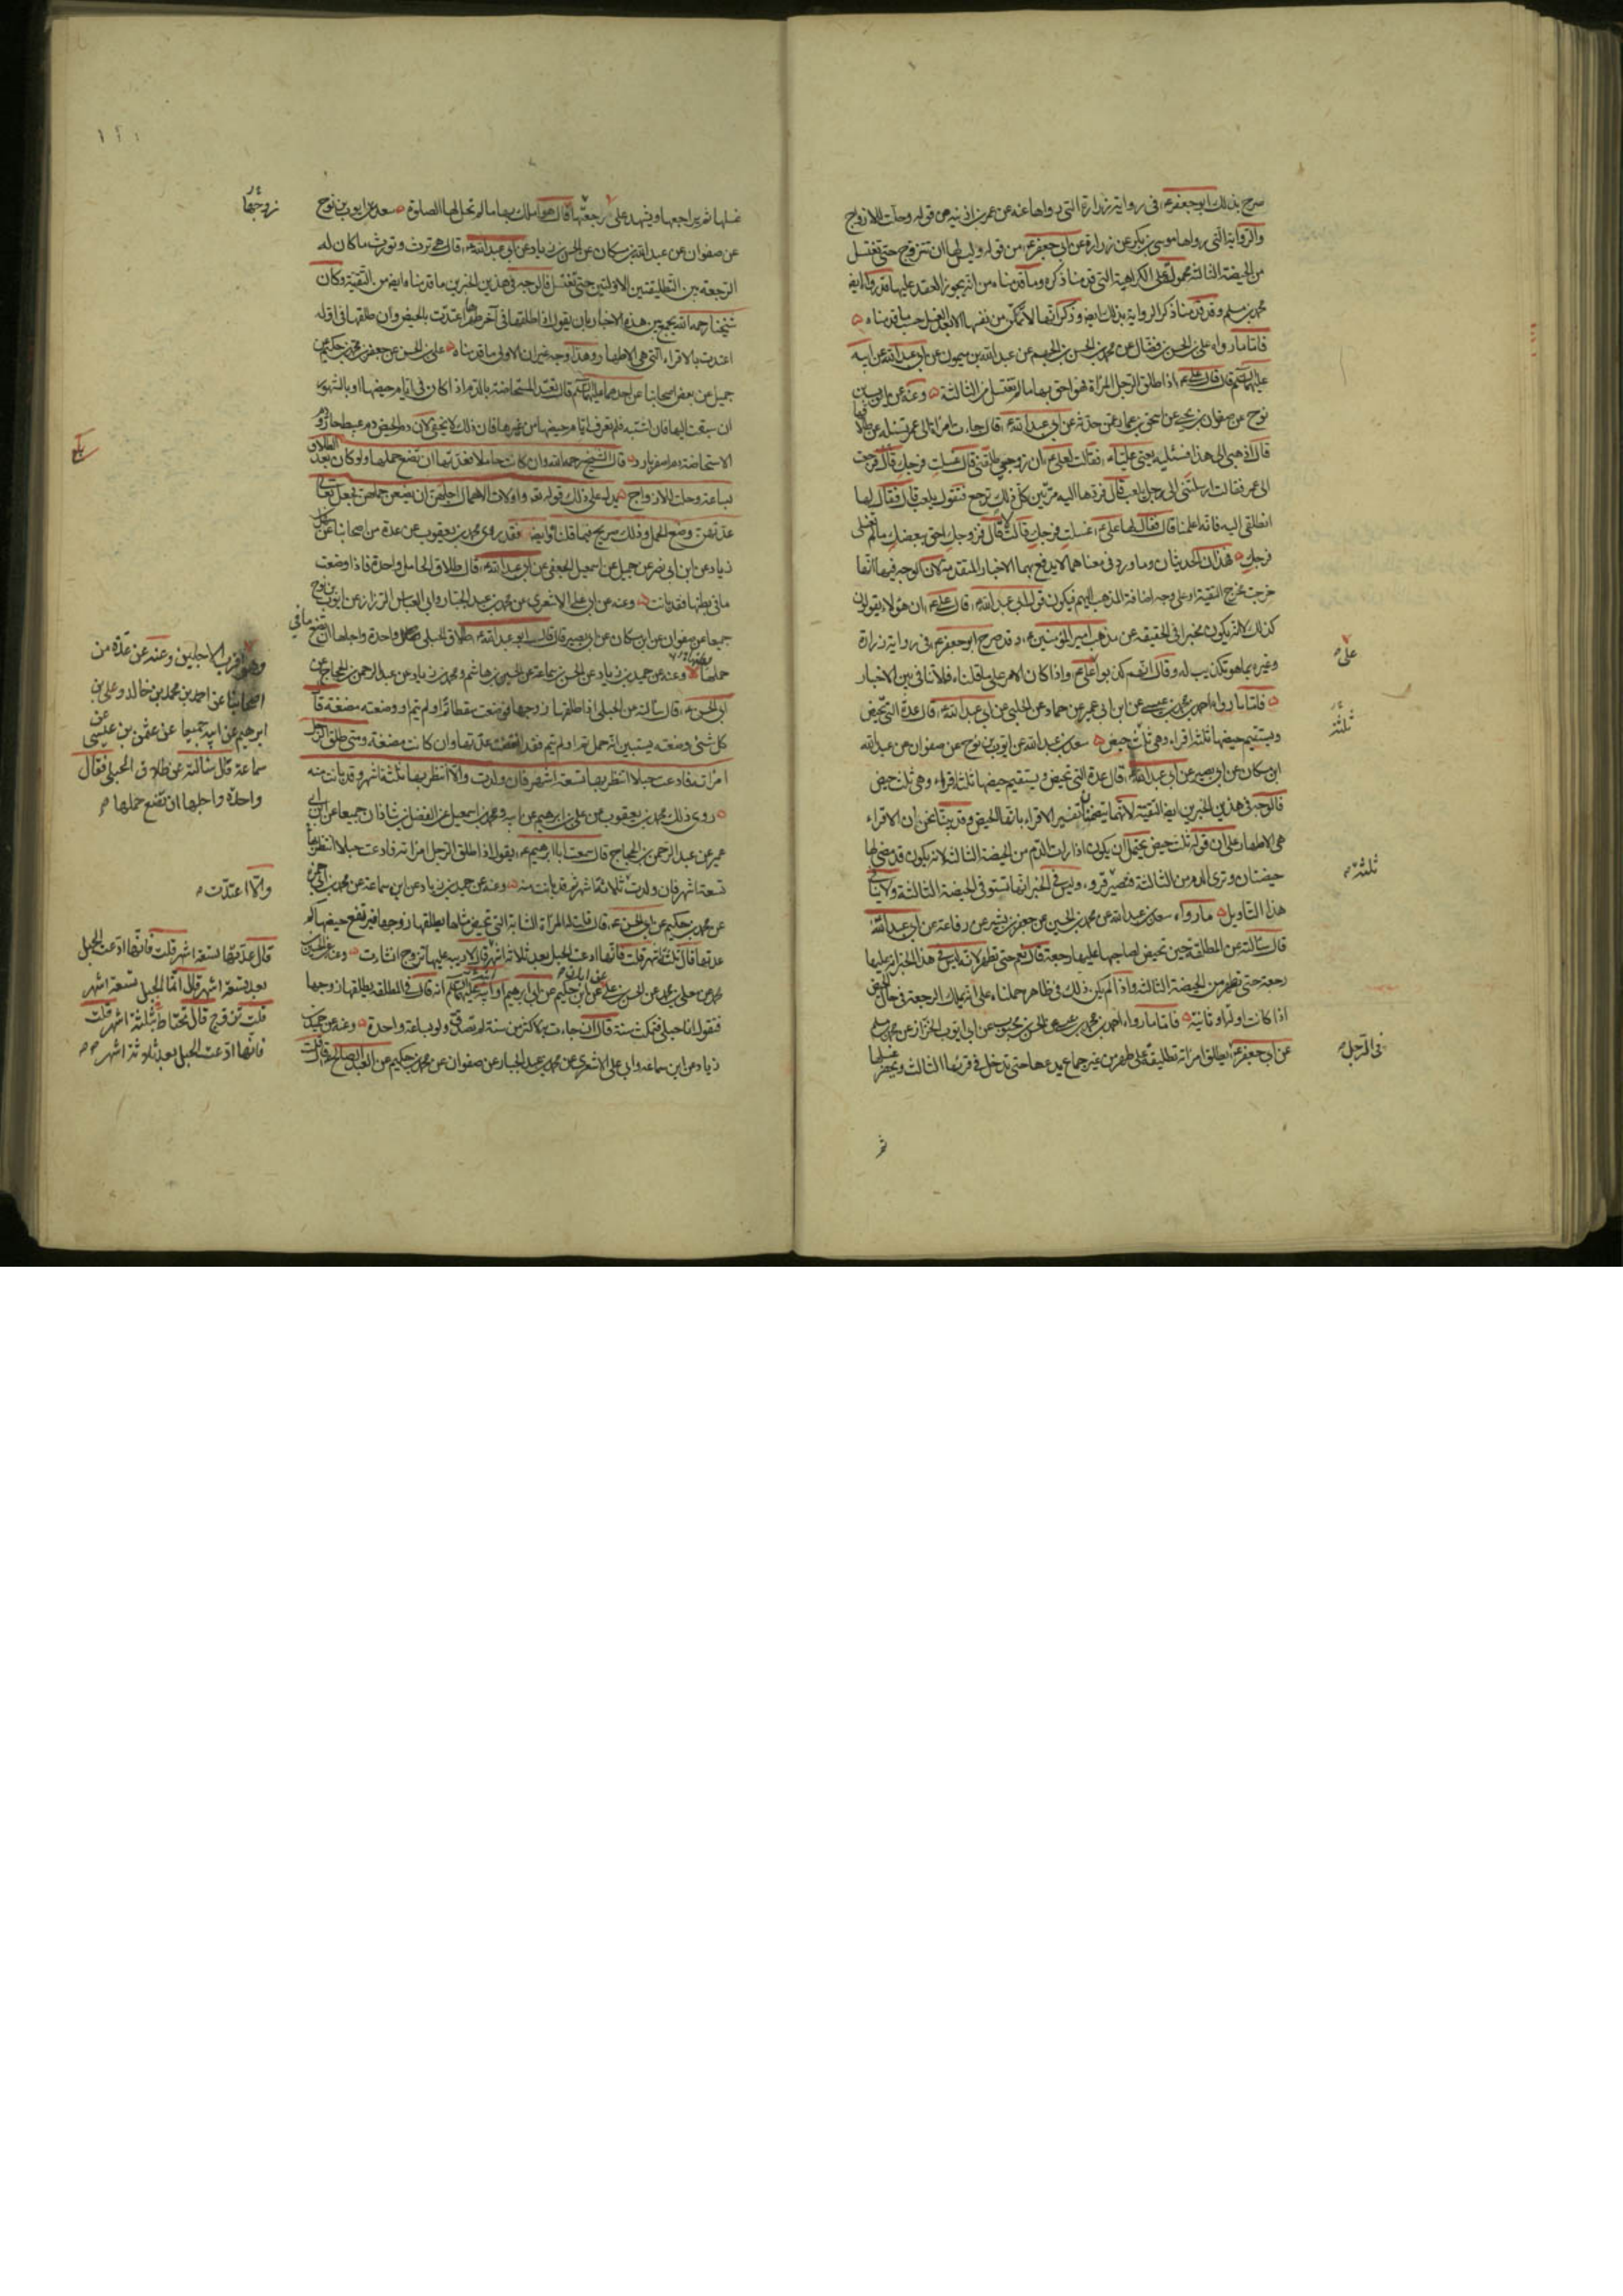 صرح بذلك ابو جعفر ع في رواية زرارة التي رواها عنه عمر بن اذينة من قوله وحلت للازواج
والرواية التي رواها موسى بن بكر عن زرارة عن ابي جعفر ع من قوله وليس لها ان تتزوج حتى تغتسل
من الحيضة الثالثة محمولة على الكراهية التي قدمنا ذكره وما قدمناه من انه يجوز العقد عليها قد رواه ايضا
محمد بن مسلم وقد قدمنا ذكر الرواية بذلك ايضا وذكر انها لا تمكن من نفسها الا بعد الغسل حسب ما قدمناه
فاما ما رواه علي بن الحسن بن فضال عن محمد بن الحسن بن الجهم عن عبد الله بن ميمون عن ابي عبد الله عن ابيه
عليهما السلم قال قال علي ع اذا طلق الرجل المراة فهو احق بها ما لم تغتسل من الثالثة وعنه عن ايوب بن
نوح عن صفوان بن يحيى عن اسحق بن عمار عمن حدثه عن ابي عبد الله ع قال جاءت امراة الى عمر تسئله عن طلاقها
قال اذهبي الى هذا فسئليه يعني عليا ع فقالت لعلي ع ان زوجي طلقني قال غسلت فرجك قال فرجعت
الى عمر فقالت ارسلتني الى رجل يلعب قال فردها اليه مرتين كل ذلك ترجع فتقول يلعب قال فقال لها
انطلقي اليه فانه اعلمنا قال فقال لها علي ع غسلت فرجك قالت لا قال فزوجك احق ببضعك ما لم تغسلي
فرجك هذان الحديثان وما ورد في معناهما لا يدفع بهما الاخبار المتقدمة لان الوجه فيها انها
خرجت مخرج التقية او على وجه اضافة المذهب اليهم فيكون قول ابي عبد الله ع قال علي ع ان هؤلاء يقولون
كذلك لا انه يكون مخبرا في الحقيقة عن مذهب امير المؤمنين ع وقد صرح ابو جعفر ع في رواية زرارة
وغيره بما هو تكذيب له وقال انهم كذبوا على علي ع واذا كان الامر على ما قلناه فلا تنافي بين الاخبار
فاما ما رواه احمد بن محمد بن عيسى عن ابن ابي عمير عن حماد عن الحلبي عن ابي عبد الله ع قال عدة التي تحيض
ويستقيم حيضها ثلثة اقراء وهي ثلث حيض سعد بن عبد الله عن ايوب بن نوح عن صفوان عن عبد الله
ابن مسكان عن ابي بصير عن ابي عبد الله ع قال عدة التي تحيض ويستقيم حيضها ثلثة اقراء وهي ثلث حيض
فالوجه في هذين الخبرين ايضا التقية لانهما يتضمنان تفسير الاقراء بانها الحيض وقد بينا نحن ان الاقراء
هي الاطهار على ان قوله ثلث حيض يحتمل ان يكون اذا رات الدم من الحيضة الثالثة لانه يكون قد مضى لها
حيضتان وترى الدم من الثالثة فتصير قروء وليس في الخبر انها تستوفي الحيضة الثالثة ولا ينافي
هذا التاويل ما رواه سعد بن عبد الله عن محمد بن الحسين عن جعفر بن بشير عن رفاعة عن ابي عبد الله ع
قال سالته عن المطلقة حين تحيض لصاحبها عليها رجعة قال نعم حتى تطهر لانه ليس في هذا الخبر ان له عليها
رجعة حتى تطهر من الحيضة الثالثة واذا لم يكن ذلك في ظاهره حملناه على انه يملك الرجعة في حال الحيض
اذا كانت اولة او ثانية فاما ما رواه احمد بن محمد بن عيسى عن الحسن بن محبوب عن ابي ايوب الخزاز عن محمد بن مسلم
عن ابي جعفر ع يطلق امراته تطليقة على طهر من غير جماع يدعها حتى تدخل في قرئها الثالث ويحضر غسلها
ثم
على
ثلثة
ثلثة
في الرجل
غسلها ثم يراجعها ويشهد على رجعتها قال هو املك بها ما لم تحل لها الصلوة سعد عن ايوب بن نوح
عن صفوان عن عبد الله بن مسكان عن الحسن بن زياد عن ابي عبد الله ع قال هي ترث وتورث ما كان له
الرجعة من التطليقتين الاولتين حتى تغتسل فالوجه في هذين الخبرين ما قدمناه ايضا من التقية وكان
شيخنا رحمه الله يجمع بين هذه الاخبار بان يقول اذا طلقها في آخر طهرها اعتدت بالحيض وان طلقها في اوله
اعتدت بالاقراء التي هي الاطهار وهذا وجه غير ان الاولى ما قدمناه علي بن الحسن عن جعفر بن محمد بن حكيم عن
جميل عن بعض اصحابنا عن احدهما عليهما السلم قال تعتد المستحاضة بالدم اذا كان في ايام حيضها او بالشهور
ان سبقت اليها فان اشتبه فلم تعرف ايام حيضها من غيرها فان ذلك لا يخفى لان دم الحيض دم عبيط حار ودم
الاستحاضة دم اصفر بارد قال الشيخ رحمه الله وان كانت حاملا فعدتها ان تضع حملها ولو كان بعد الطلاق
بساعة وحلت للازواج يدل على ذلك قوله تعالى واولات الاحمال اجلهن ان يضعن حملهن فجعل تعالى
عدتهن وضع الحمل وذلك صريح فيما قلناه وايضا فقد روى محمد بن يعقوب عن عدة من اصحابنا عن سهل بن
زياد عن ابن ابي نصر عن جميل عن اسمعيل الجعفي عن ابي عبد الله ع قال طلاق الحامل واحدة فاذا وضعت
ما في بطنها فقد بانت وعنه عن ابي علي الاشعري عن محمد بن عبد الجبار وابي العباس الرزاز عن ايوب بن نوح
جميعا عن صفوان عن ابن مسكان عن ابي بصير قال قال ابو عبد الله ع طلاق الحبلى واحدة واجلها ان تضع
حملها وعنه عن حميد بن زياد عن الحسن بن سماعة عن الحسين بن هاشم ومحمد بن زياد عن عبد الرحمن بن الحجاج عن
ابي الحسن ع قال سالته عن الحبلى اذا طلقها زوجها فوضعت سقطا تم او لم يتم او وضعته مضغة قال
كل شئ وضعته يستبين انه حمل تم او لم يتم فقد انقضت عدتها وان كانت مضغة ومتى طلق الرجل
امراته فادعت حبلا انتظر بها تسعة اشهر فان ولدت والا انتظر بها ثلثة اشهر وقد بانت منه
روى ذلك محمد بن يعقوب عن علي بن ابرهيم عن ابيه ومحمد بن اسمعيل عن الفضل بن شاذان جميعا عن ابن ابي
عمير عن عبد الرحمن بن الحجاج قال سمعت ابا ابرهيم ع يقول اذا طلق الرجل امراته فادعت حبلا انتظر بها
تسعة اشهر فان ولدت ثلاثة اشهر ثم قد بانت منه وعنه عن حميد بن زياد عن ابن سماعة عن محمد بن ابي حمزة
عن محمد بن حكيم عن ابي الحسن ع قال قلت له المراة الشابة التي تحيض مثلها يطلقها زوجها فيرتفع حيضها كم
عدتها قال ثلثة اشهر قلت فانها ادعت الحبل بعد ثلاثة اشهر قال لا ريب عليها تزوج ان شاءت
محمد عن معلى بن محمد عن الحسن بن علي عن ابان عن ابن حكيم عن ابي ابرهيم او ابنه عليهما السلم انه قال في المطلقة يطلقها زوجها
فتقول انا حبلى فتمكث سنة قال ان جاءت به لاكثر من سنة لم تصدق ولو بساعة واحدة وعنه عن حميد بن
زياد عن ابن سماعة وابي علي الاشعري عن محمد بن عبد الجبار عن صفوان عن محمد بن حكيم عن العبد الصالح ع قال قلت
زوجها
ما في
وهو اقرب الاجلين وعنه عن عدة من
اصحابنا عن احمد بن محمد بن خالد وعلي بن
ابرهيم عن ابيه جميعا عن عثمن بن عيسى عن
سماعة قال سالته عن طلاق الحبلى فقال
واحدة واجلها ان تضع حملها
والا اعتدت
قال عدتها تسعة اشهر قلت فانها ادعت الحبل
بعد تسعة اشهر قال انما الحبل تسعة اشهر
قلت تزوج قال تحتاط بثلثة اشهر قلت
فانها ادعت الحبل بعد ثلاثة اشهر